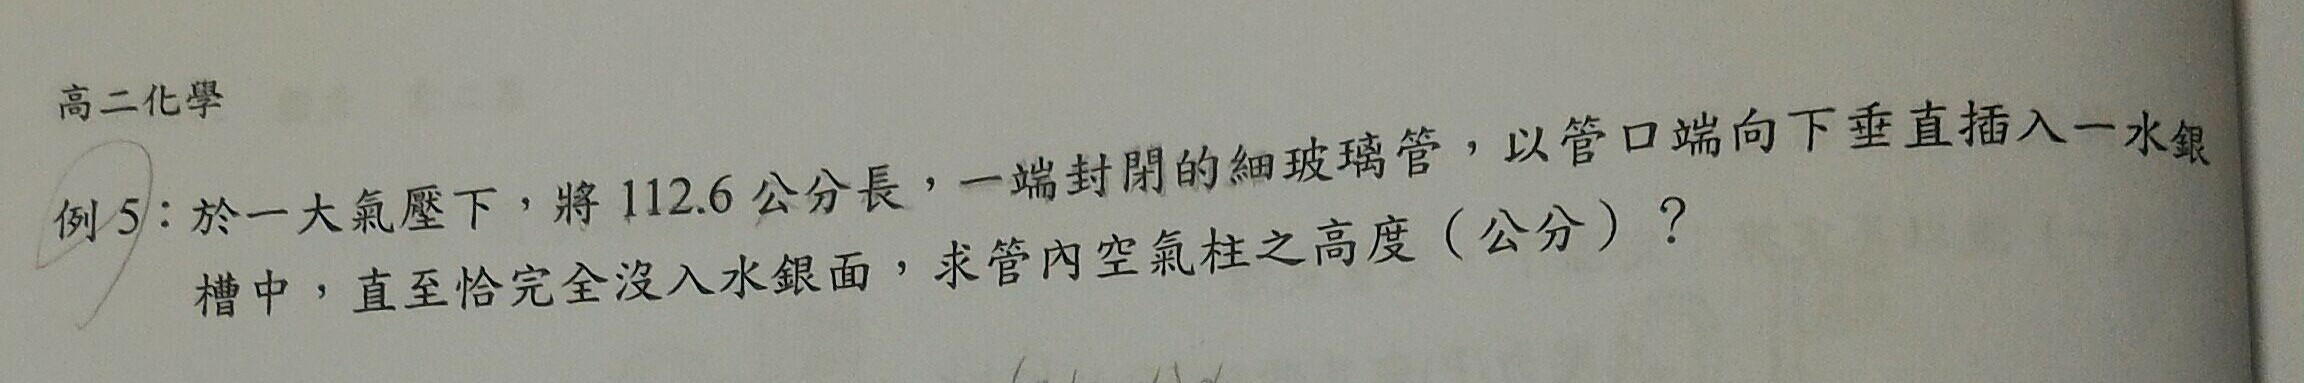 高二化學
例 5：於一大氣壓下，將 112.6 公分長，一端封閉的細玻璃管，以管口端向下垂直插入一水銀
槽中，直至恰完全沒入水銀面，求管內空氣柱之高度（公分）？